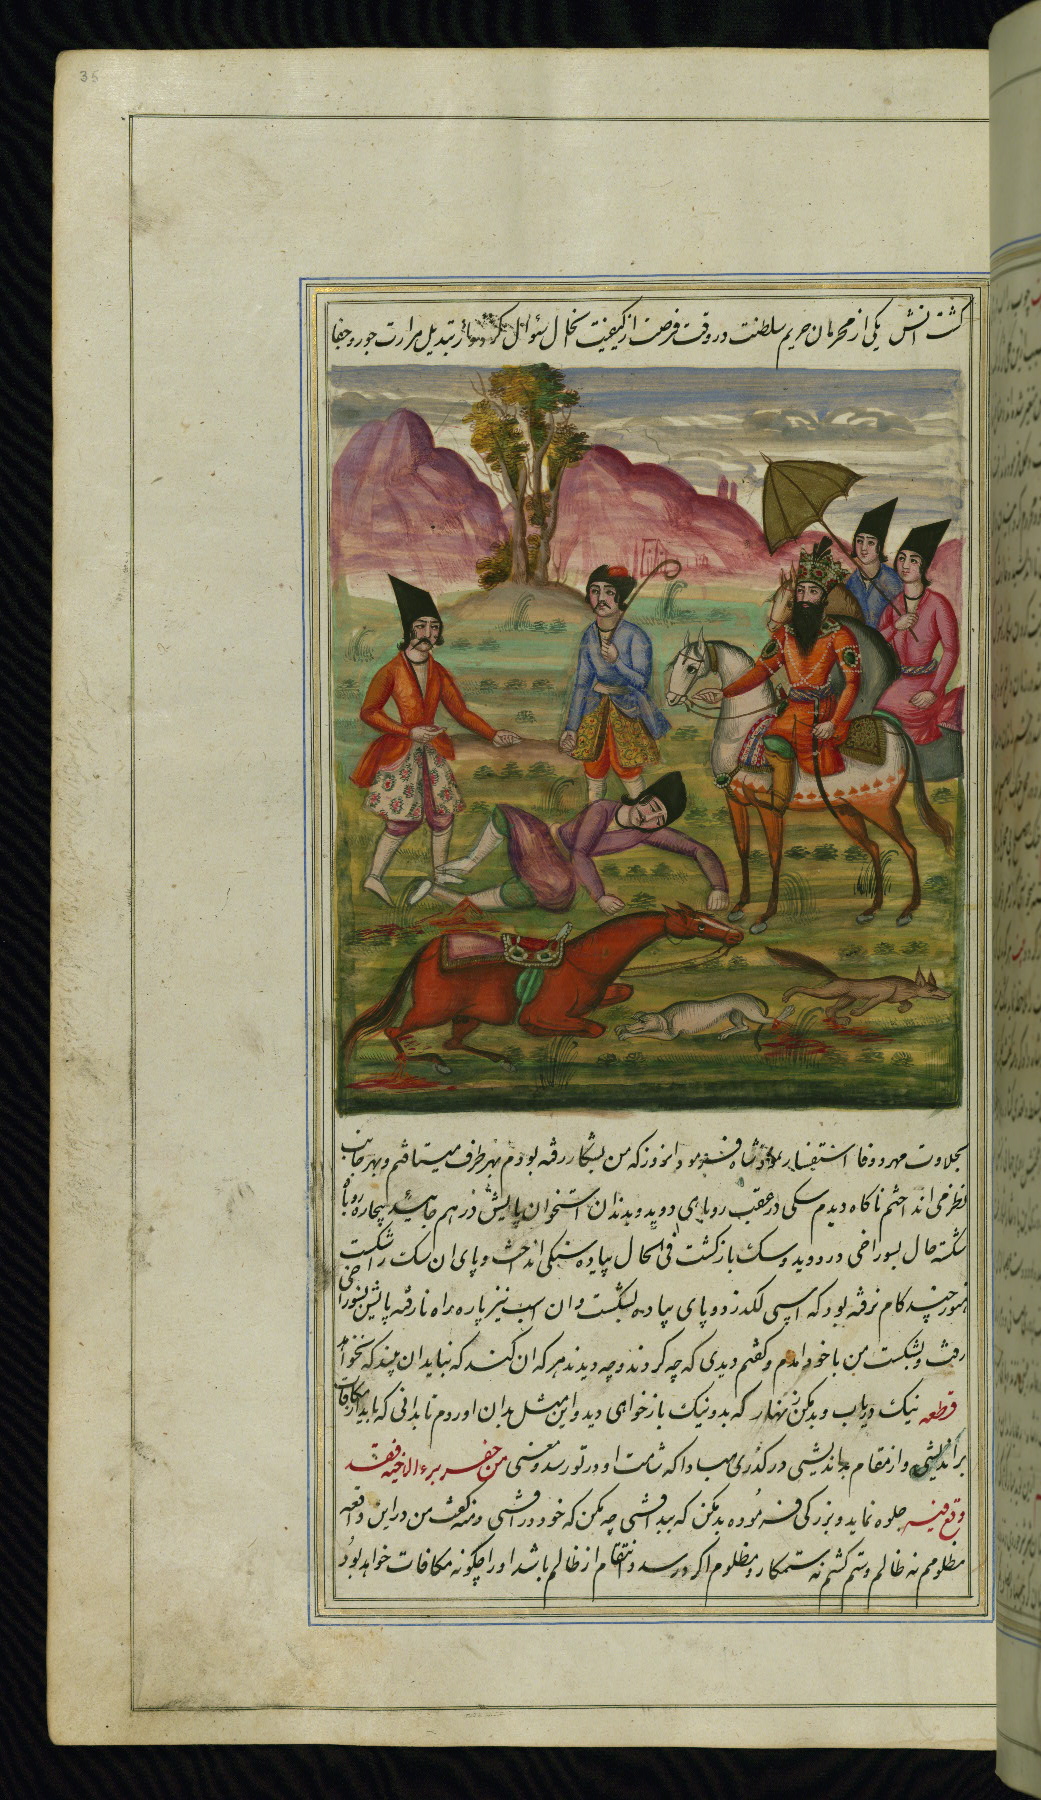 35
گشت انش یکی از محرمان حریم سلطنت در وقت فرصت از کیفیت نخل سئوال کرد و از تبدیل مرارت جور و جفا
بحلاوت مهر و وفا استفسار نمود شاه فرمود انروز که من بشکار رفته بودم بهر طرف میتافتم و بهر جانب
نظر می انداختم ناکاه دیدم سکی در عقب روباهی دوید و بدندان استخوان پایش در هم خایید بیچاره روباه
شکسته حال بسوراخی در دوید و سک بازکشت فی الحال پیاده سنکی انداخت و پای ان سک را شکست
هنوز چند کام نرفته بود که اسپی لکد زد و پای پیاده بشکست و ان اسب نیز پاره راه نارفته پایش بسوراخی
رفت و بشکست من با خود امدم و کفتم دیدی که چه کردند و چه دیدند هر که ان کند که نباید ان بیند که نخواهد
قطعه نیک دریاب و بد مکن زنهار که بد و نیک باز خواهی دید و این مثل بدان اوردم تا بدانی که باید از مکافات
براندیشی و از مقام بداندیشی درکذری مبادا که شامت او در تو رسد و معنی من حفر بیرء لاخیه فقد
وقع فیه جلوه نماید و بزرکی فرموده بد مکن که بد افتی چه مکن که خود در افتی دمنه کفت من در این واقعه
مظلومم نه ظالم و ستم کشم نه ستمکار و مظلوم اکر در سد و انتقام از ظالم باشد او را چکونه مکافات خواهد بود